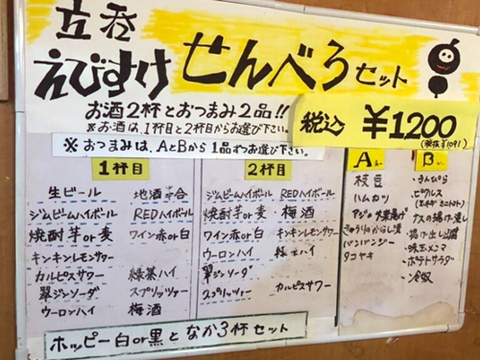 立呑
えびすけ せんべろセット
お酒2杯とおつまみ2品!!
※お酒は、1杯目と2杯目からお選び下さい。
※おつまみは、AとBから1品ずつお選び下さい。
税込 ¥1200
(税抜¥1091)
1杯目
生ビール
地酒
ジムビームハイボール
REDハイボール
焼酎芋or麦
ワイン赤or白
キンキンレモンサワー
カルピスサワー
緑茶ハイ
翠ジンソーダ
スプリッツァー
ウーロンハイ
梅酒
2杯目
ジムビームハイボール
REDハイボール
焼酎芋or麦
梅酒
ワイン赤or白
キンキンレモンサワー
ウーロンハイ
緑茶ハイ
翠ジンソーダ
スプリッツァー
カルピスサワー
A
枝豆
ハムカツ
アジの大葉揚げ
きゅうりのからし漬
バンバンジー
タコヤキ
B
・きんぴら
・ピクルス
ナスの揚げ浸し
・揚げ出し豆腐
・味玉メンマ
・ポテトサラダ
・冷奴
ホッピー白or黒となか3杯セット